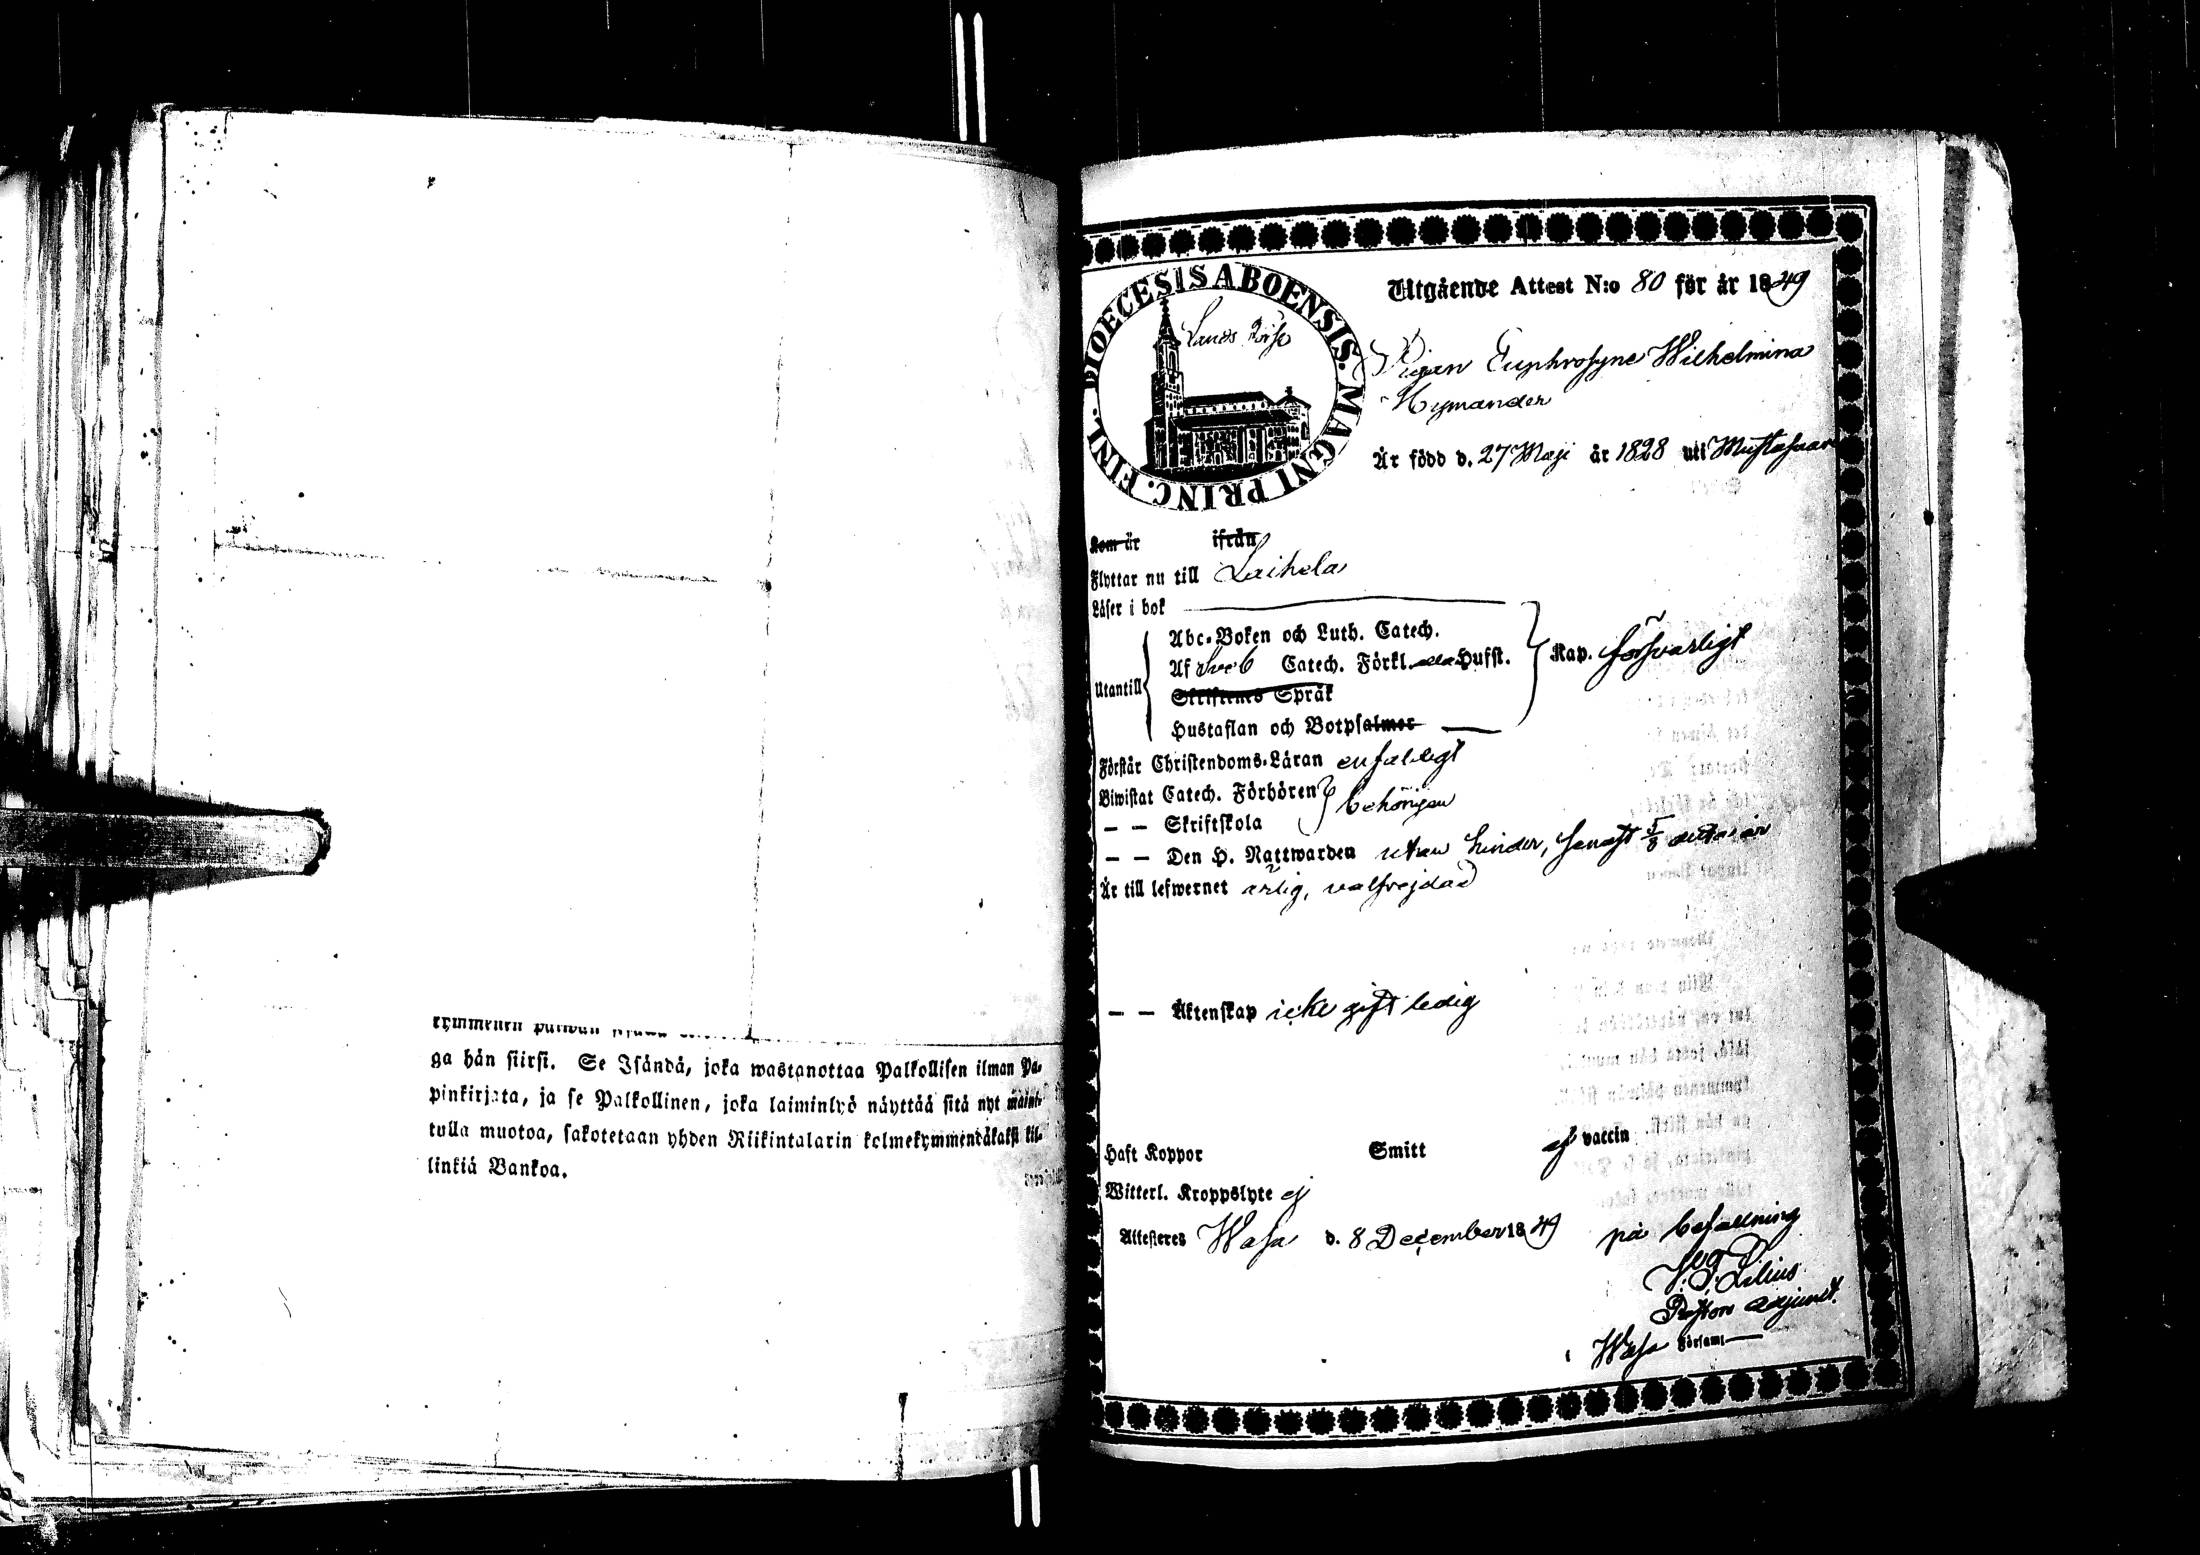 ga hån siirsi. Se Isåndå, joka wastanottaa Palkollisen ilman Pa-
pinkirjata, ja se Palkollinen, joka laiminlyö nåyttåå sitå nyt måini-
tulla muotoa, sakotetaan yhden Riikintalarin kolmekymmentåkaksi kil-
linkiå Bankoa.
DIOECESIS ABOENSIS. MAGNI PRINC. FINL.
Utgående Attest N:o 80 för år 1849
Pigan Euphrosyne Wilhelmina
Nymander
År född d. 27 Maji år 1828 uti Mustasaari
Kom år ifrån
Flyttar nu till Laihela
Läser i bok
Utantill
Abc-Boken och Luth. Catech.
Af Sveb Catech. Förkl. Husst.
Skriftenes Språk
Hustaflan och Botpsalmer
Kap. försvarligt
Förstår Christendoms-Läran enfaldigt
Biwistat Catech. Förhören behörigen
— — Skriftskola
— — Den H. Nattwarden utan hinder, senast 5/8 detta år
Är till lefwernet ärlig, välfrejdad
— — Äktenskap icke gift ledig
Haft Koppor Smitt af vaccin
Witterl. Kroppslyte ej
Attesteres Wasa d. 8 December 1849
på befallning
Lilius
Pastors adjunct.
i Wasa Församl